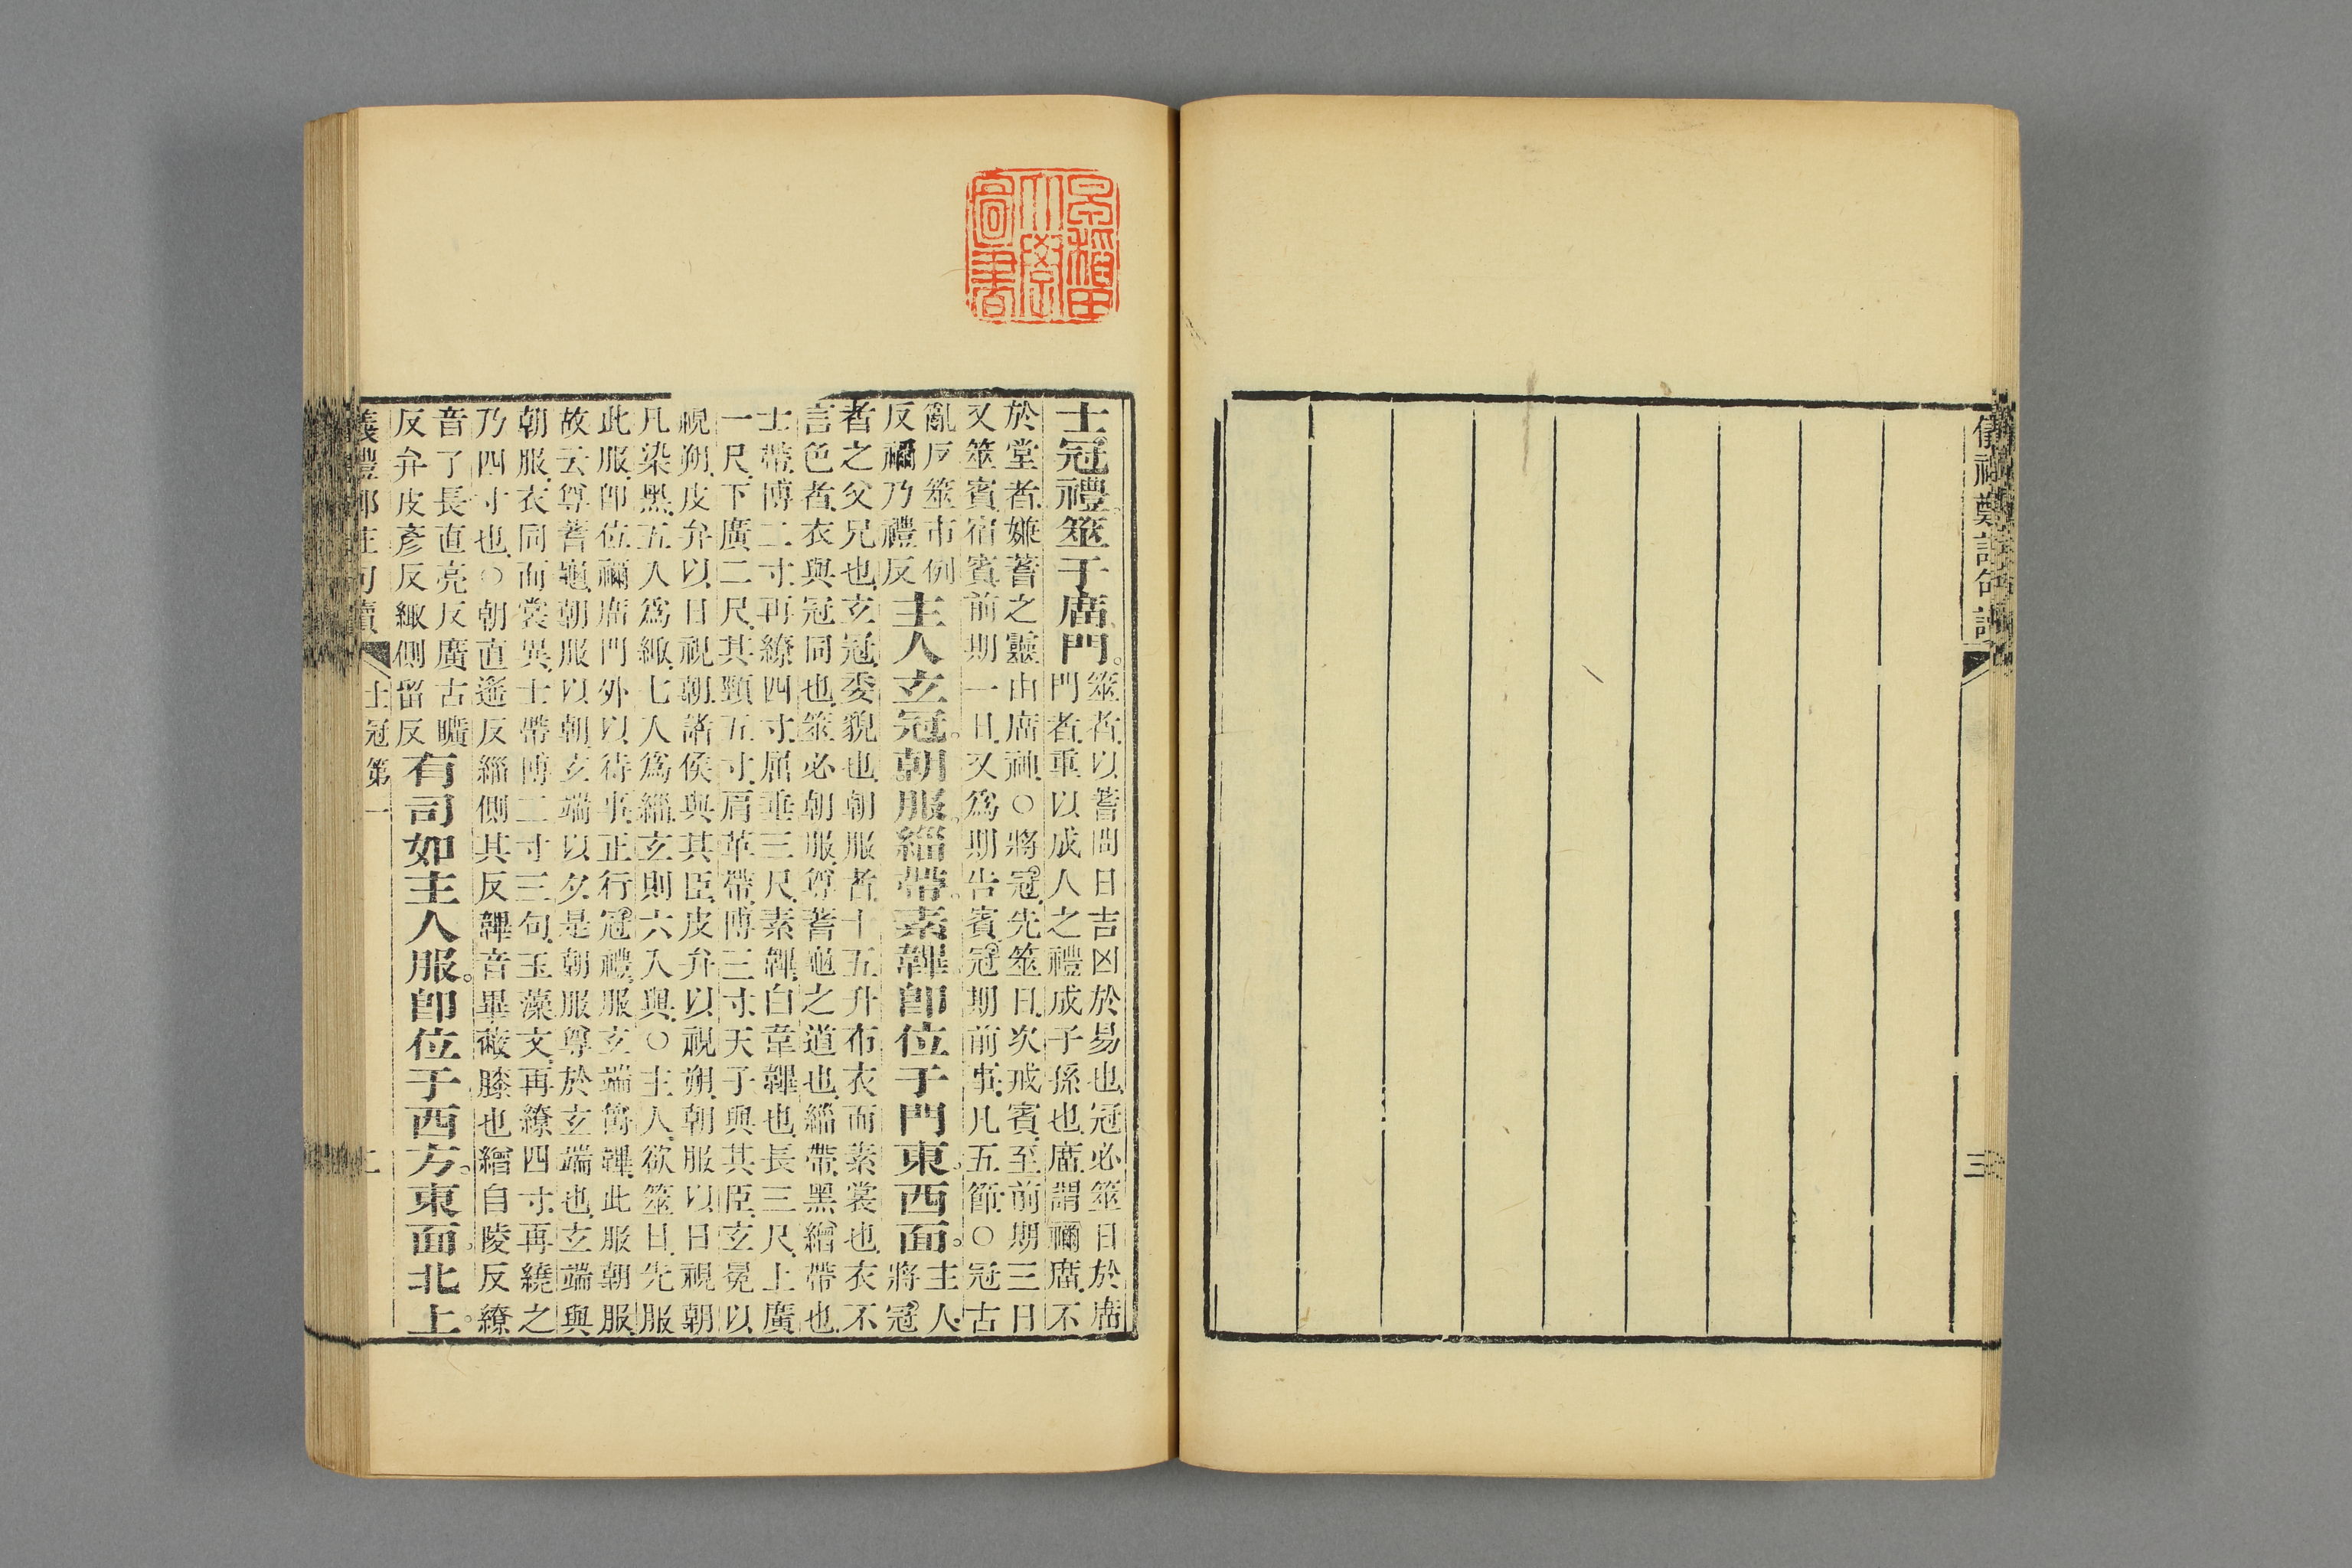 儀禮鄭註句讀
三
早稻田
大學
圖書
士冠禮筮于庿門。
筮者以蓍問日吉凶於易也冠必筮日於庿
門者重以成人之禮成子孫也庿謂禰庿不
於堂者嫌蓍之靈由庿神○將冠先筮日次戒賓至前期三日
又筮賓宿賓前期一日又爲期告賓冠期前事凡五節○冠古
亂反筮市例
反禰乃禮反
主人玄冠。朝服。緇帶。素韠即位于門東。西面。
主人
將冠
者之父兄也玄冠委貌也朝服者十五升布衣而素裳也衣不
言色者衣與冠同也筮必朝服尊蓍龜之道也緇帶黑繒帶也
士帶博二寸再繚四寸屈垂三尺素韠白韋韠也長三尺上廣
一尺下廣二尺其頸五寸肩革帶博三寸天子與其臣玄冕以
視朔皮弁以日視朝諸侯與其臣皮弁以視朔朝服以日視朝
凡染黑五入爲緅七入爲緇玄則六入與○主人欲筮日先服
此服即位禰庿門外以待事正行冠禮服玄端爵韠此服朝服
故云尊蓍龜朝服以朝玄端以夕是朝服尊於玄端也玄端與
朝服衣同而裳異士帶博二寸三句玉藻文再繚四寸再繞之
乃四寸也○朝直遙反緇側其反韠音畢蔽膝也繒自陵反繚
音了長直亮反廣古曠
反弁皮彥反緅側留反
有司如主人服。即位于西方。東面。北上。
士冠第一